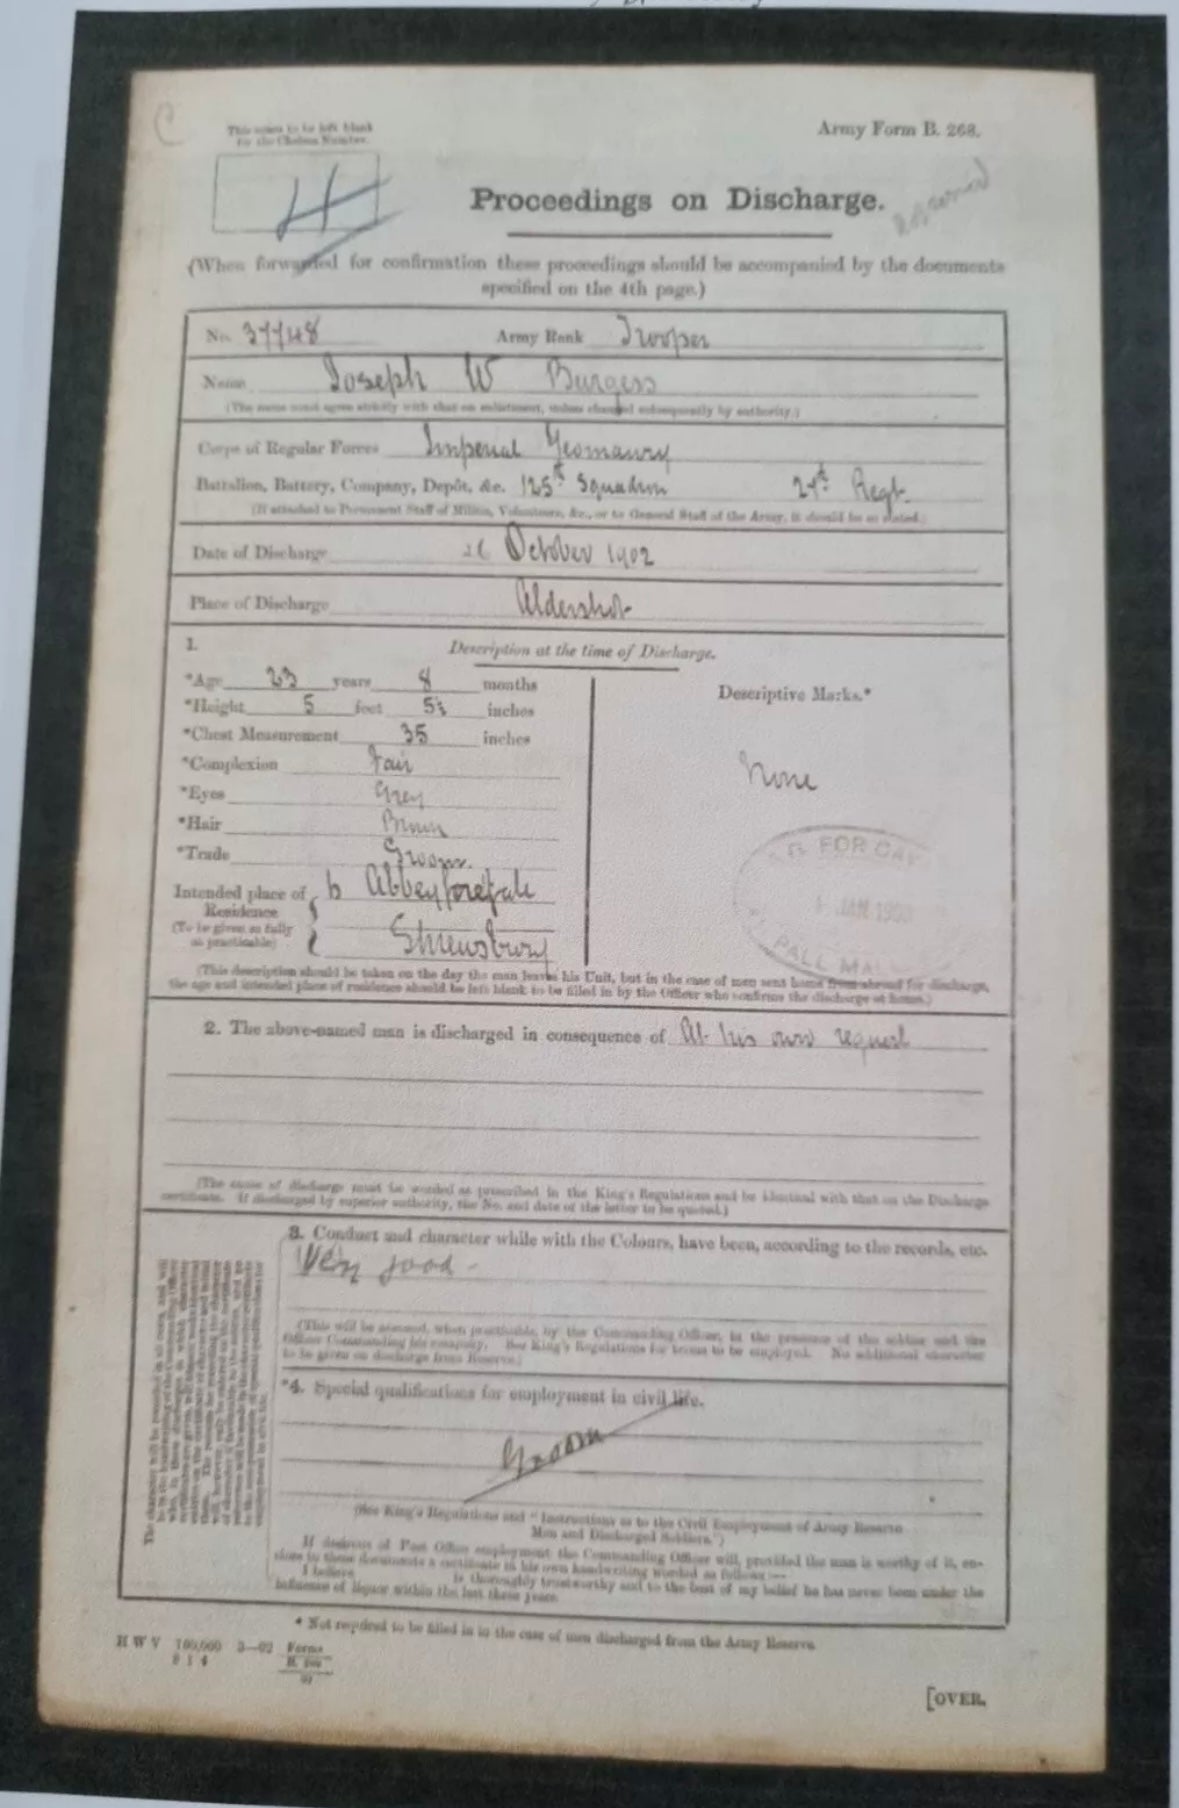 C
This space to be left blank
for the Chelsea Number.
Army Form B. 268.
Proceedings on Discharge.
(When forwarded for confirmation these proceedings should be accompanied by the documents
specified on the 4th page.)
No. 37748 Army Rank Trooper
Name Joseph W Burgess
(The name must agree strictly with that on enlistment, unless changed subsequently by authority.)
Corps of Regular Forces Imperial Yeomanry
Battalion, Battery, Company, Depôt, &c. 125th Squadron 27th Regt.
(If attached to Permanent Staff of Militia, Volunteers, &c., or to General Staff of the Army, it should be so stated.)
Date of Discharge October 1902
Place of Discharge Aldershot
1.
Description at the time of Discharge.
*Age 23 years 8 months
Descriptive Marks.*
*Height 5 feet 5½ inches
*Chest Measurement 35 inches
*Complexion Fair
None
*Eyes Grey
*Hair Brown
*Trade Groom.
FOR CAV
JAN 1903
PALL MAL
Intended place of Residence Abbeyforegate
(To be given as fully as practicable) Shrewsbury
(This description should be taken on the day the man leaves his Unit, but in the case of men sent home from abroad for discharge,
the age and intended place of residence should be left blank to be filled in by the Officer who confirms the discharge at home.)
2. The above-named man is discharged in consequence of At his own request
(The cause of discharge must be worded as prescribed in the King's Regulations and be identical with that on the Discharge
certificate. If discharged by superior authority, the No. and date of the letter to be quoted.)
3. Conduct and character while with the Colours, have been, according to the records, etc.
Very good -
(This will be assessed, when practicable, by the Commanding Officer, in the presence of the soldier and the
Officer Commanding his company. See King's Regulations for terms to be employed. No additional character
to be given on discharge from Reserve.)
*4. Special qualifications for employment in civil life.
Groom
(See King's Regulations and "Instructions as to the Civil Employment of Army Reserve
Men and Discharged Soldiers.")
If desirous of Post Office employment the Commanding Officer will, provided the man is worthy of it, en-
close in these documents a certificate in his own handwriting worded as follows:—
I believe is thoroughly trustworthy and to the best of my belief he has never been under the
influence of liquor within the last three years.
* Not required to be filled in in the case of men discharged from the Army Reserve
H W V 100,000 3—02 Forms
[OVER.